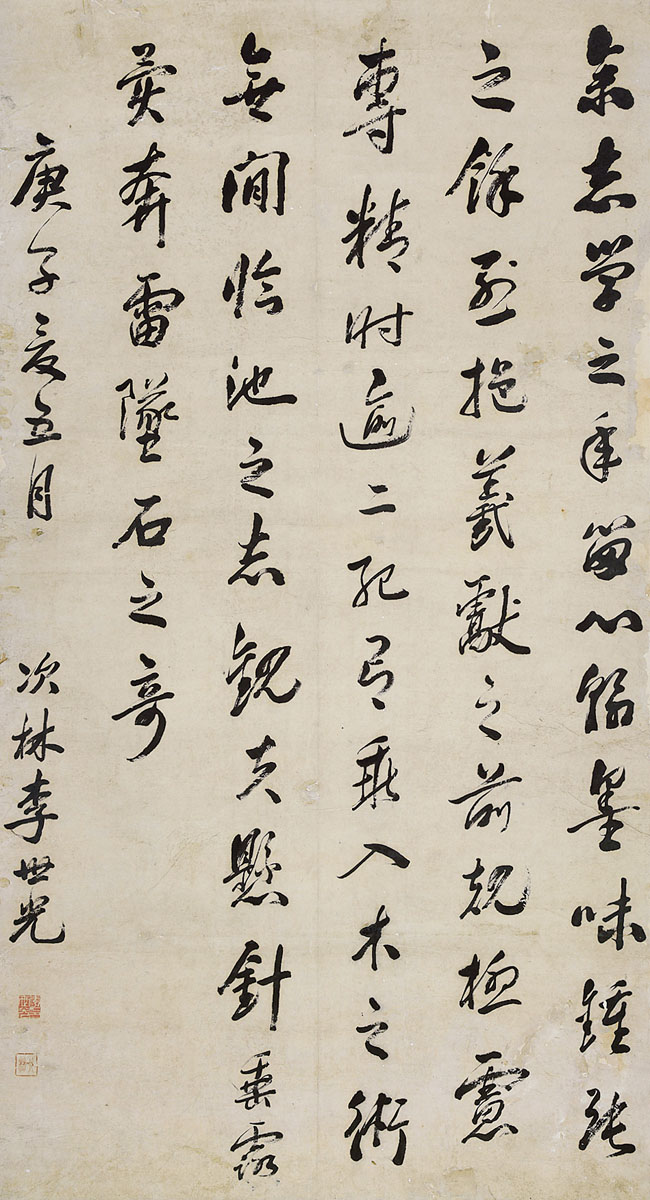 余志學之年留心翰墨味鍾張
之餘烈挹羲獻之前規極慮
專精時逾二紀有乖入木之術
無間臨池之志觀夫懸針垂露
之異奔雷墜石之奇
庚子夏五月
次林李世光